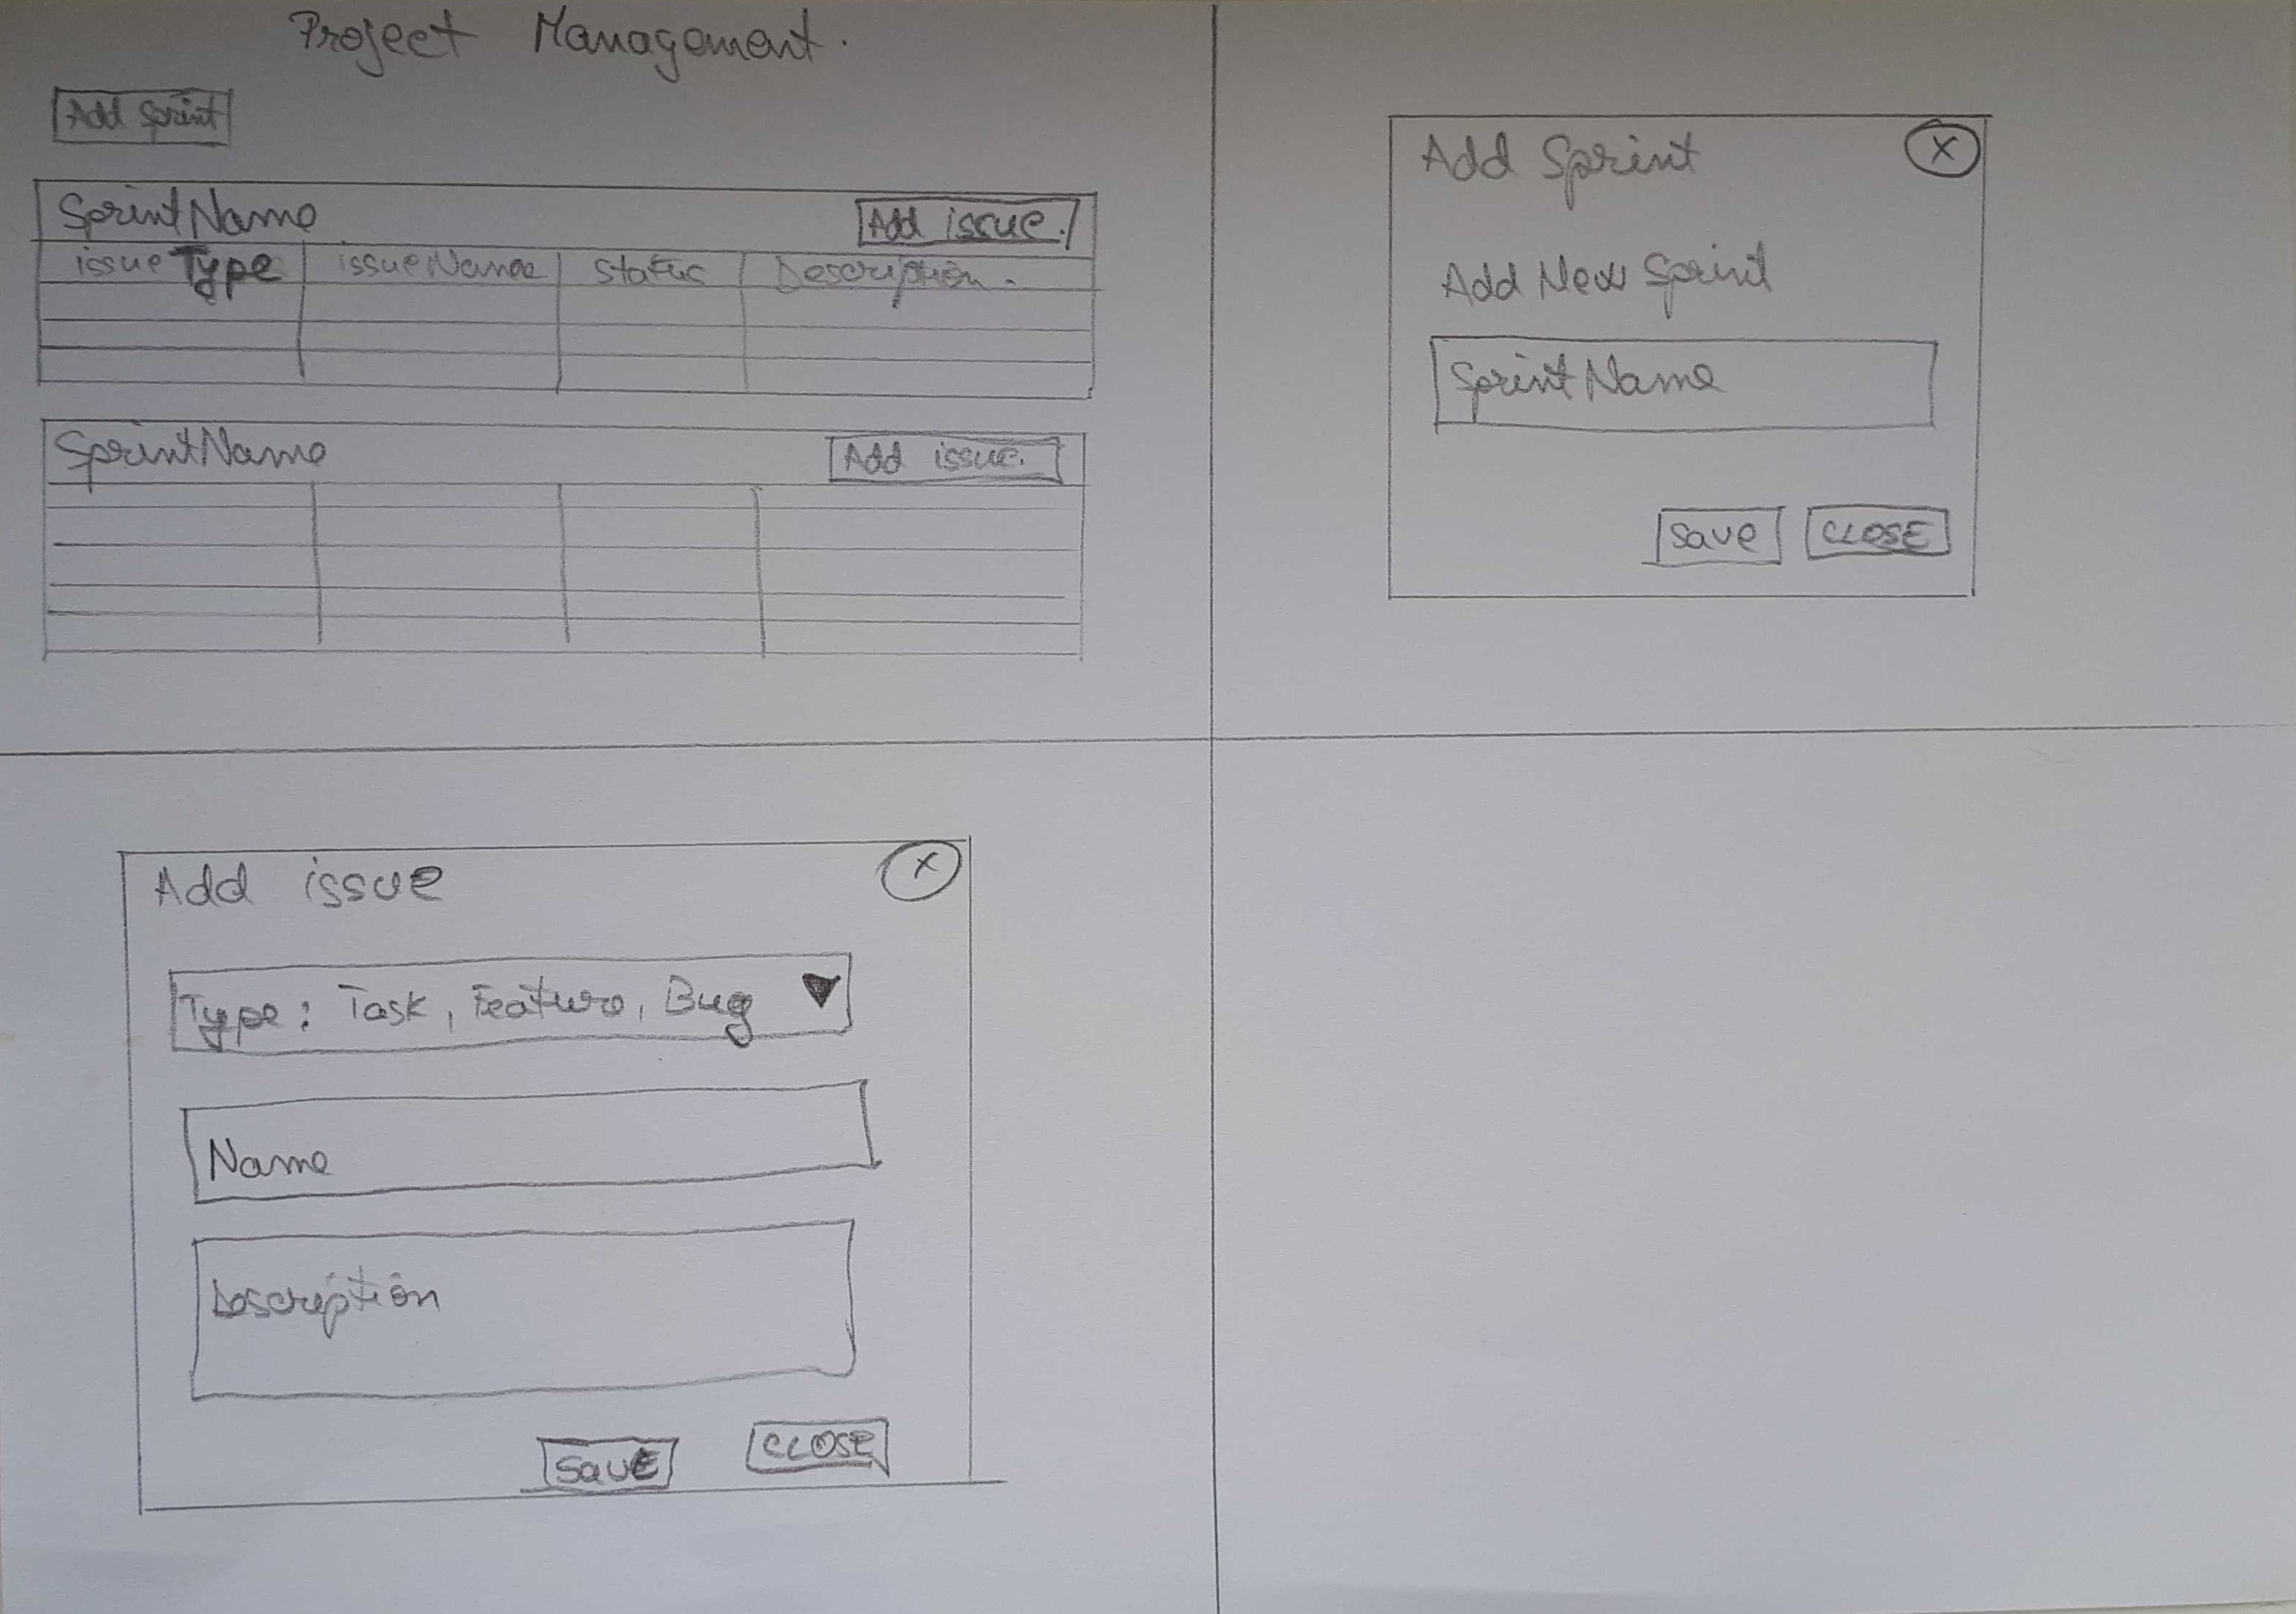 Project Management.
Add Sprint
SprintName Add issue.
issue Type issueName status Description.
SprintName Add issue.
Add Sprint X
Add New Sprint
SprintName
Save CLOSE
Add issue X
Type: Task, Feature, Bug
Name
Description
Save CLOSE